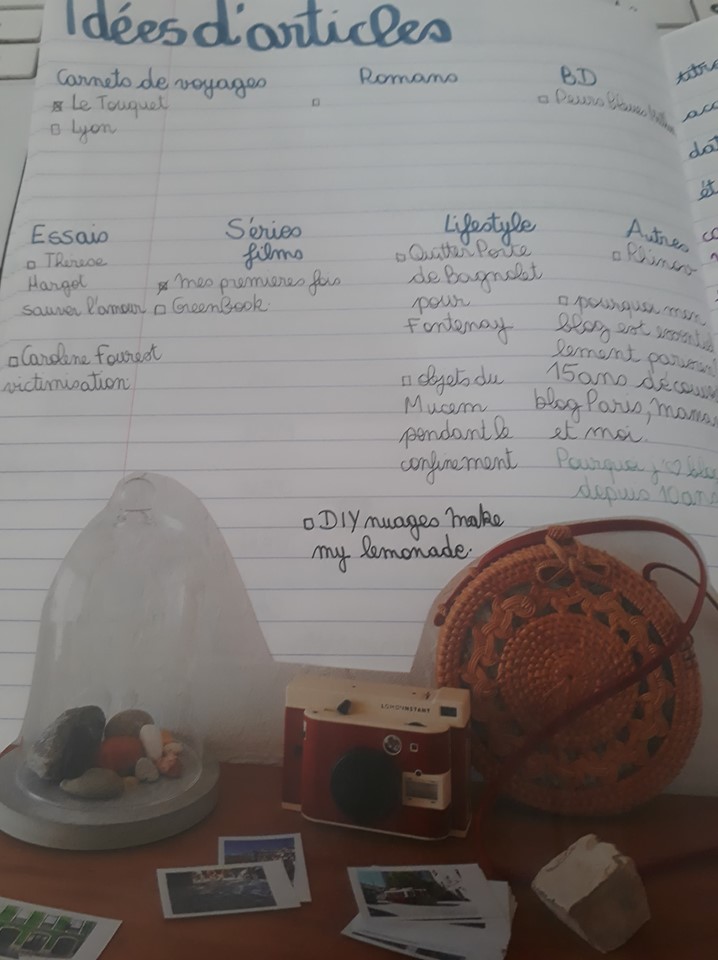 Idées d'articles
Carnets de voyages
Le Touquet
Lyon
Romans
BD
Essais
Thérèse
Hargot
sauver l'amour
Caroline Fourest
victimisation
Séries
films
mes premieres fois
GreenBook
Lifestyle
Quitter Porte
de Bagnolet
pour
Fontenay
objets du
Mucem
pendant le
confinement
DIY nuages make
my lemonade.
Autres
pourquoi mon
blog est
lement
15ans
blog Paris,
et moi.
Pourquoi j'♡
depuis 10 ans
LOMO'INSTANT